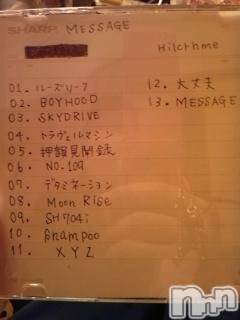 SHARP MESSAGE
Hilcrhme
01. ルーズリーフ
02. BOYHOOD
03. SKYDRIVE
04. トラヴェルマシン
05. 押韻見聞録
06. NO.109
07. デタミネーション
08. Moon Rise
09. SH704i
10. Shampoo
11. XYZ
12. 大丈夫
13. MESSAGE